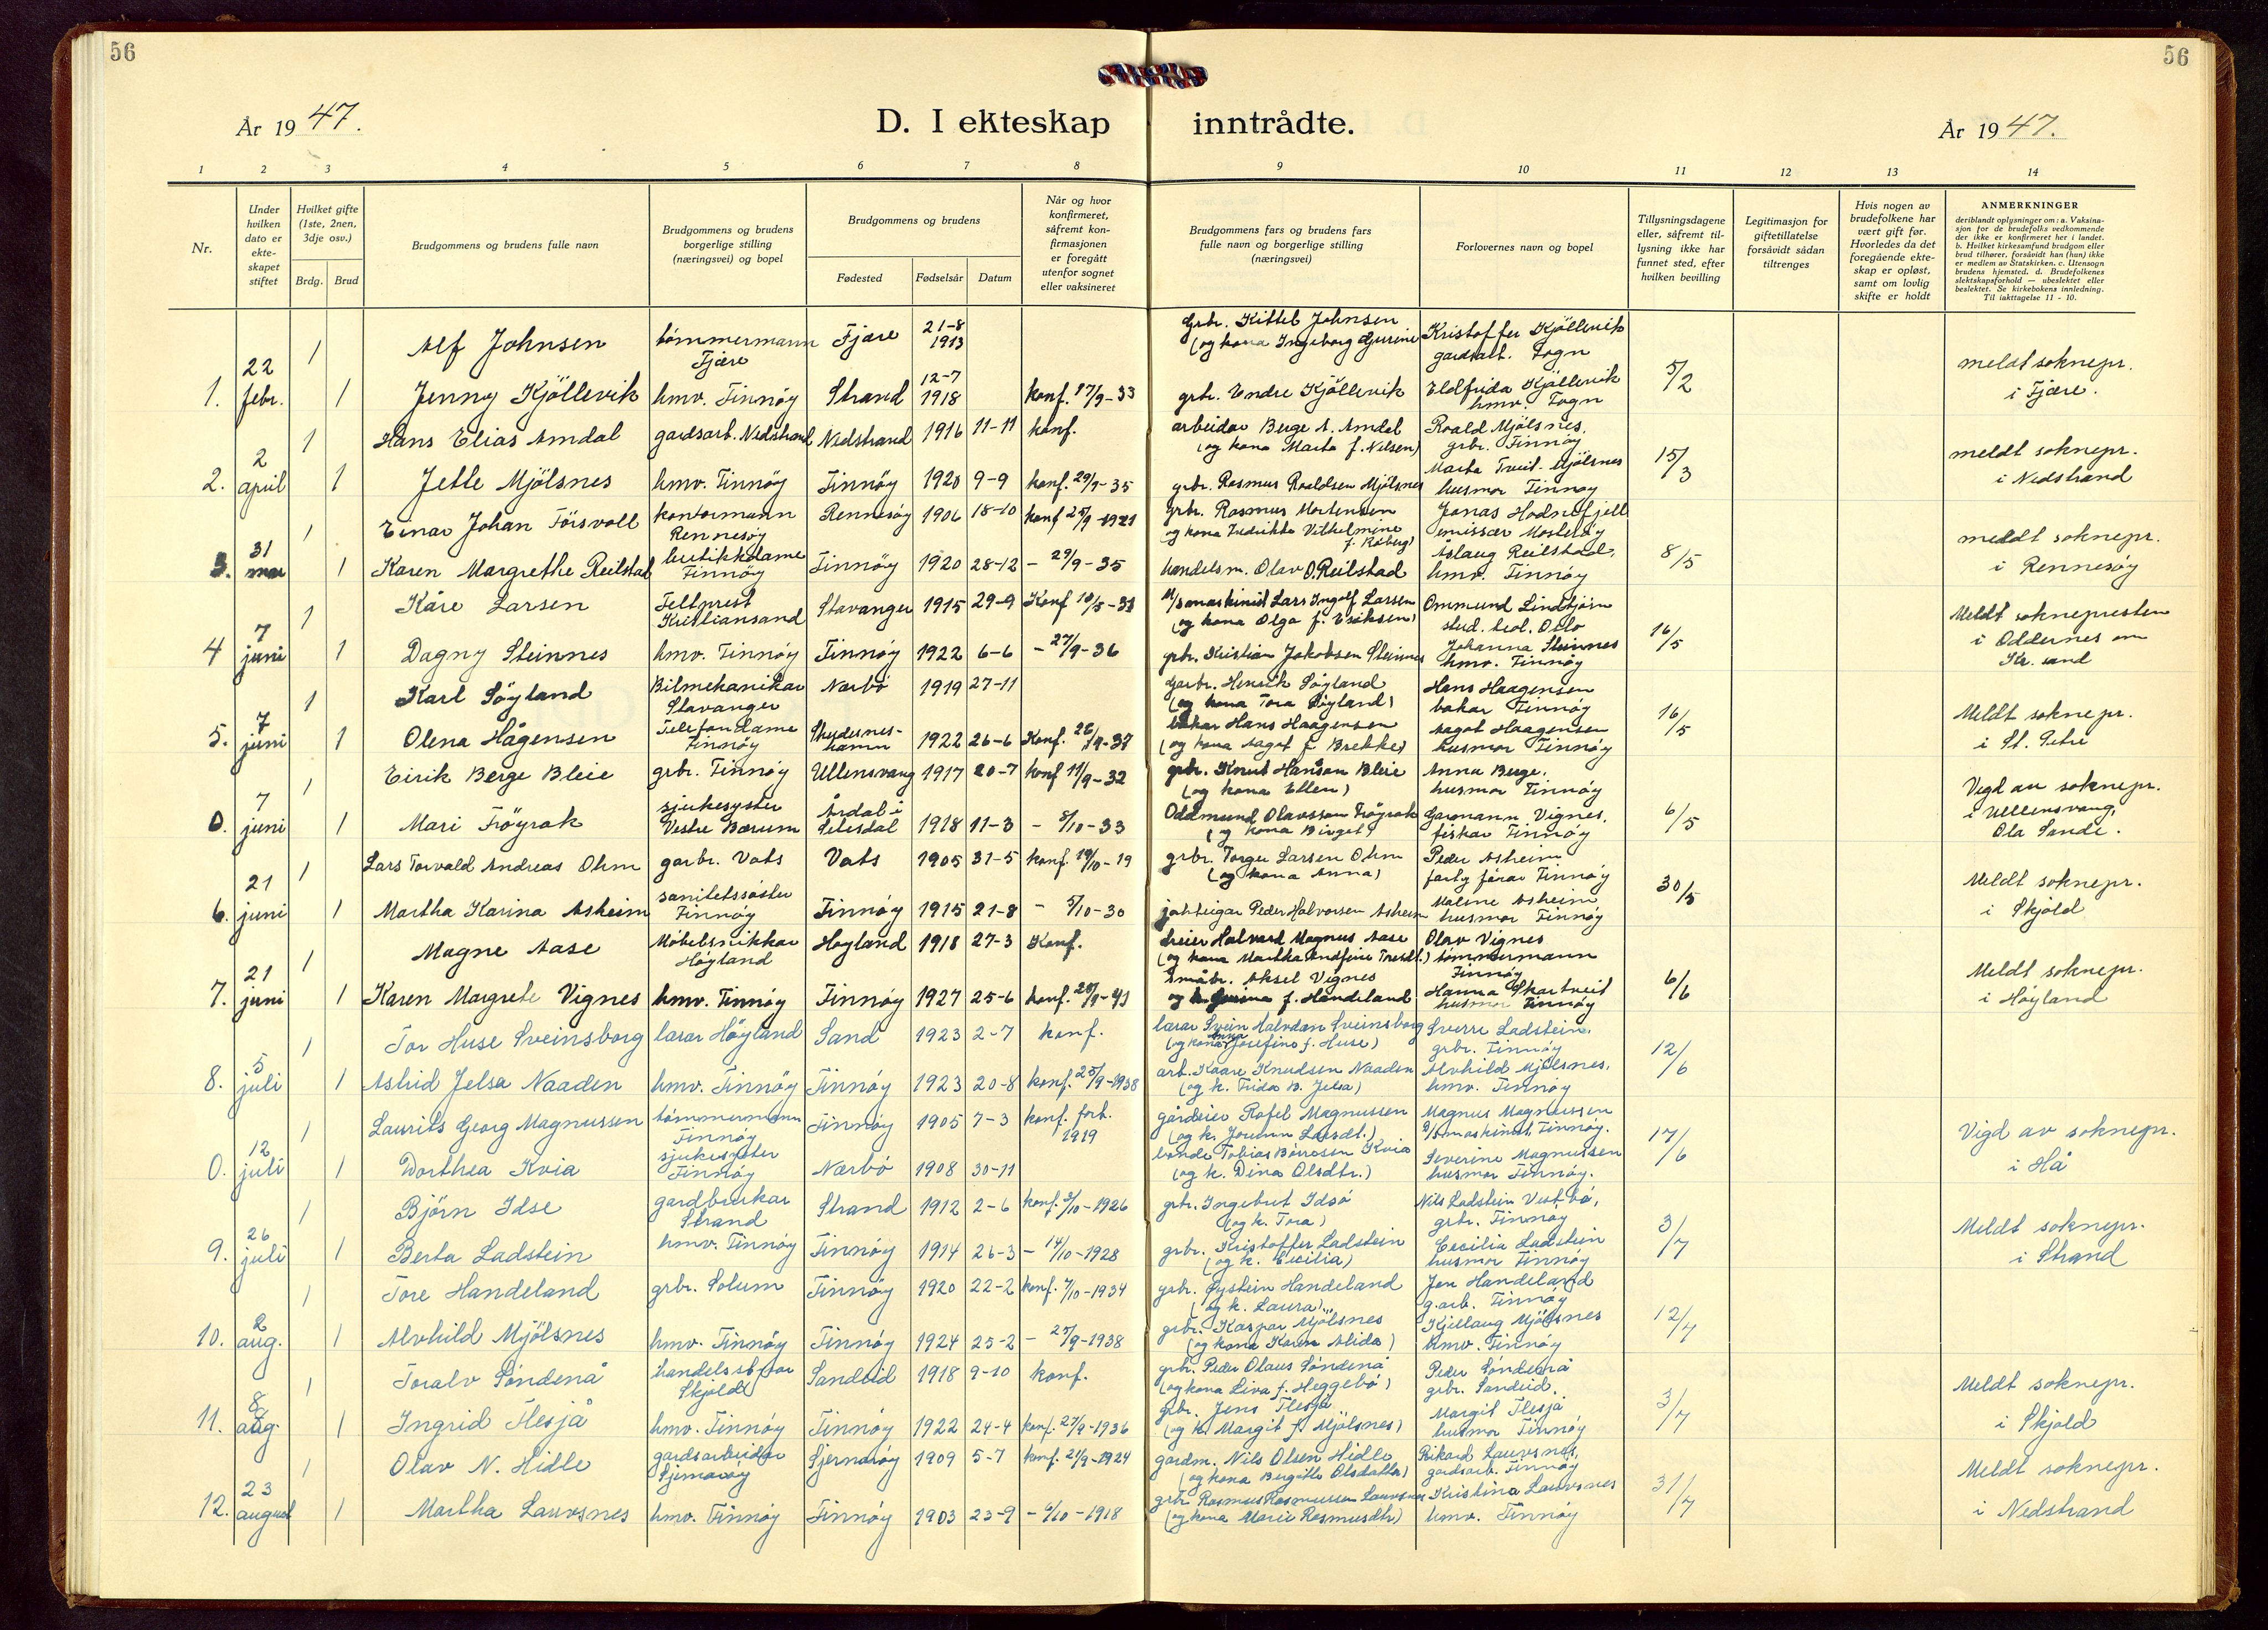 56
56
År 1947.
D. I ekteskap inntrådte.
År 1947.
1 2 3 4 5 6 7 8 9 10 11 12 13 14
Nr.
Under hvilken dato er ekteskapet stiftet
Hvilket gifte (1ste, 2nen, 3dje osv.)
Brdg. Brud
Brudgommens og brudens fulle navn
Brudgommens og brudens borgerlige stilling (næringsvei) og bopel
Brudgommens og brudens
Fødested Fødselsår Datum
Når og hvor konfirmeret, såfremt konfirmasjonen er foregått utenfor sognet eller vaksineret
Brudgommens fars og brudens fars fulle navn og borgerlige stilling (næringsvei)
Forlovernes navn og bopel
Tillysningsdagene eller, såfremt tillysning ikke har funnet sted, efter hvilken bevilling
Legitimasjon for giftetillatelse forsåvidt sådan tiltrenges
Hvis nogen av brudefolkene har vært gift før. Hvorledes da det foregående ekteskap er opløst, samt om lovlig skifte er holdt
ANMERKNINGER
deriblandt oplysninger om: a. Vaksinasjon for de brudefolks vedkommende der ikke er konfirmeret her i landet. b. Hvilket kirkesamfund brudgom eller brud tilhører, forsåvidt han (hun) ikke er medlem av Statskirken. c. Utensogn brudens hjemsted. d. Brudefolkenes slektskapsforhold — ubeslektet eller beslektet. Se kirkebokens innledning. Til iakttagelse 11 - 10.
1 Alf Johnsen tømmermann Fjære Fjære 21-8 1913 Grbr. Kittel Johnsen (og kona Ingeborg Gurine Kristoffer Kjöllevik gardsarb. Fogn
1. 22 febr. 1 Jenny Kjöllevik hmv. Finnöy Strand 12-7 1918 konf. 17/9-33 grbr. Endre Kjöllevik Eldfrida Kjöllevik hmv. Fogn 5/2 meldt soknepr. i Fjære.
1 Hans Elias Amdal gardsarb. Nedstrand Nedstrand 1916 11-11 konf. arbeidar Berge A. Amdal (og kona Marta f. Nilsen) Roald Mjölsnes, grbr. Finnöy
2. 2 april 1 Jette Mjölsnes hmv. Finnöy Finnöy 1920 9-9 konf. 29/9-35 grbr. Rasmus Roaldsen Mjölsnes Marta Tveit-Mjölsnes husmor Finnöy 15/3 meldt soknepr. i Nedstrand
1 Einar Johan Försvoll kontormann Rennesöy Rennesöy 1906 18-10 konf 25/9-1921 grbr. Rasmus Mortensen og kona Fredrikke Vilhelmine Jonas Hodnefjell emissær Mosteröy
3. 31 mai 1 Karen Margrethe Reilstad butikkdame Finnöy Finnöy 1920 28-12 - 29/9-35 handelsm. Olav O. Reilstad Åslaug Reilstad, hmv. Finnöy 8/5 meldt soknepr. i Rennesöy
1 Kåre Larsen Feltprest Kristiansand Stavanger 1915 29-9 Konf 10/5-31 Lars Ingolf Larsen (og kona Olga f. Eriksen) Ommund Lindtjörn stud. teol. Oslo
4 7 juni 1 Dagny Steinnes hmv. Finnöy Finnöy 1922 6-6 - 27/9-36 grbr. Kristian Jakobsen Steinnes Johanna Steinnes hmv. Finnöy 16/5 Meldt soknepresten i Oddernes om Kr. sand
1 Karl Söyland Bilmekanikar Stavanger Nærbö 1919 27-11 Garbr. Henrik Söyland (og kona Tora Söyland) Hans Haagensen bakar Finnöy
5. 7 juni 1 Olena Hågensen Telefondame Finnöy Skudesneshamn 1922 26-6 Konf. 26/9-37 bakar Hans Haagensen (og kona Aagot f. Brekke) Aagot Haagensen husmor Finnöy 16/5 Meldt soknepr. i St. Petri
1 Eirik Berge Bleie grbr. Finnöy Ullensvang 1917 20-7 konf 11/9-32 grbr. Knut Hansson Bleie (og kona Ellen) Anna Berge, husmor Finnöy
0. 7 juni 1 Mari Fröyrak sjukesyster Vestre Bærum Årdal i Setesdal 1918 11-3 - 8/10-33 Oddmund Olavsson Fröyrak (og kona Birget) Garmann Vignes, fiskar Finnöy 6/5 Vigd av soknepr. i Ullensvang, Ola Sande.
1 Lars Torvald Andreas Ohm garbr. Vats Vats 1905 31-5 konf. 19/10-19 grbr. Torger Larsen Ohm (og kona Anna) Peder Asheim fartyförar Finnöy
6. 21 juni 1 Martha Karina Asheim sanitetssöster Finnöy Finnöy 1915 21-8 - 5/10-30 jakteigar Peder Halvorsen Asheim Maline Asheim husmor Finnöy 30/5 Meldt soknepr. i Skjold
1 Magne Aase Möbelsnikkar Höyland Höyland 1918 27-3 Konf. Halvard Magnus Aase Olav Vignes tömmermann Finnöy
7. 21 juni 1 Karen Margrete Vignes hmv. Finnöy Finnöy 1927 25-6 konf. 28/9-41 småbr. Aksel Vignes f. Handeland Hanna Skartveit husmor Finnöy 6/6 Meldt soknepr. i Höyland
1 Tor Huse Sveinsborg lærar Höyland Sand 1923 2-7 konf. lærar Svein Halvdan Sveinsborg (og kona Anna Josefine f. Huse) Sverre Ladstein, grbr. Finnöy
8. 5 juli 1 Astrid Jelsa Naaden hmv. Finnöy Finnöy 1923 20-8 konf. 25/9-1938 arb. Kaare Knudsen Naaden (og k. Frida B. Jelsa) Alvhild Mjölsnes, hmv. Finnöy 12/6
1 Laurits Georg Magnussen tömmermann Finnöy Finnöy 1905 7-3 konf. 1919 gårdeier Rafel Magnussen (og k. Jorunn Larsdt.) Magnus Magnussen Finnöy.
0. 12 juli 1 Dorthea Kvia sjukesyster Finnöy Nærbö 1908 30-11 bonde Tobias Börresen Kvia (og k. Dina Olsdtr.) Severine Magnussen husmor Finnöy. 17/6 Vigd av soknepr. i Hå
1 Björn Idse gardbrukar Strand Strand 1912 2-6 konf. 3/10-1926 grbr. Ingebret Idsö (og k. Tora) Nils Ladstein Vestbö, grbr. Finnöy
9. 26 juli 1 Berta Ladstein hmv. Finnöy Finnöy 1914 26-3 - 14/10-1928 grbr. Kristoffer Ladstein (og k. Cecilia) Cecilia Ladstein husmor Finnöy 3/7 Meldt soknepr. i Strand
1 Tore Handeland grbr. Solum Finnöy 1920 22-2 konf. 7/10-1934 grbr. Öystein Handeland (og k. Laura) Jon Handeland g.arb. Finnöy
10. 2 aug. 1 Alvhild Mjölsnes hmv. Finnöy Finnöy 1924 25-2 - 25/9-1938 grbr. Kaspar Mjölsnes (og kona Karen Alida) Kjellaug Mjölsnes hmv. Finnöy 12/7
1 Toralv Söndenå handelsstyrar Skjold Sandeid 1918 9-10 konf. grbr. Peder Olaus Söndenå (og kona Liva f. Heggebö) Peder Söndenå grbr. Sandeid.
11. 8 aug. 1 Ingrid Flesjå hmv. Finnöy Finnöy 1922 24-4 konf. 27/9-1936 grbr. Jens Flesjå (og k. Margit f. Mjölsnes) Margit Flesjå husmor Finnöy 3/7 Meldt soknepr. i Skjold
1 Olav N. Hidle gardsarbeidar Sjernaröy Sjernaröy 1909 5-7 konf. 21/9-1924 gardm. Nils Olsen Hidle (og kona Bergitte Olsdatter) Rikard Lauvsnes, gardsarb. Finnöy
12. 23 august 1 Martha Lauvsnes hmv. Finnöy Finnöy 1903 23-9 - 6/10-1918 grbr Rasmus Rasmussen Lauvsnes (og kona Marie Rasmusdtr) Kristina Lauvsnes hmv. Finnöy 31/7 Meldt soknepr. i Nedstrand